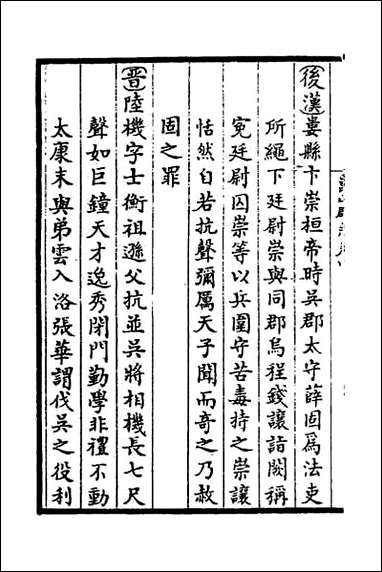 後漢婁縣卞崇桓帝時吳郡太守薛固爲法吏
所繩下廷尉崇與同郡烏程錢讓詣闕稱
寃廷尉囚崇等以兵圍守苦毒持之崇讓
怡然自若抗聲彌厲天子聞而奇之乃赦
固之罪
晉陸機字士衡祖遜父抗並吳將相機長七尺
聲如巨鐘天才逸秀閉門勤學非禮不動
太康末與弟雲入洛張華謂伐吳之役利